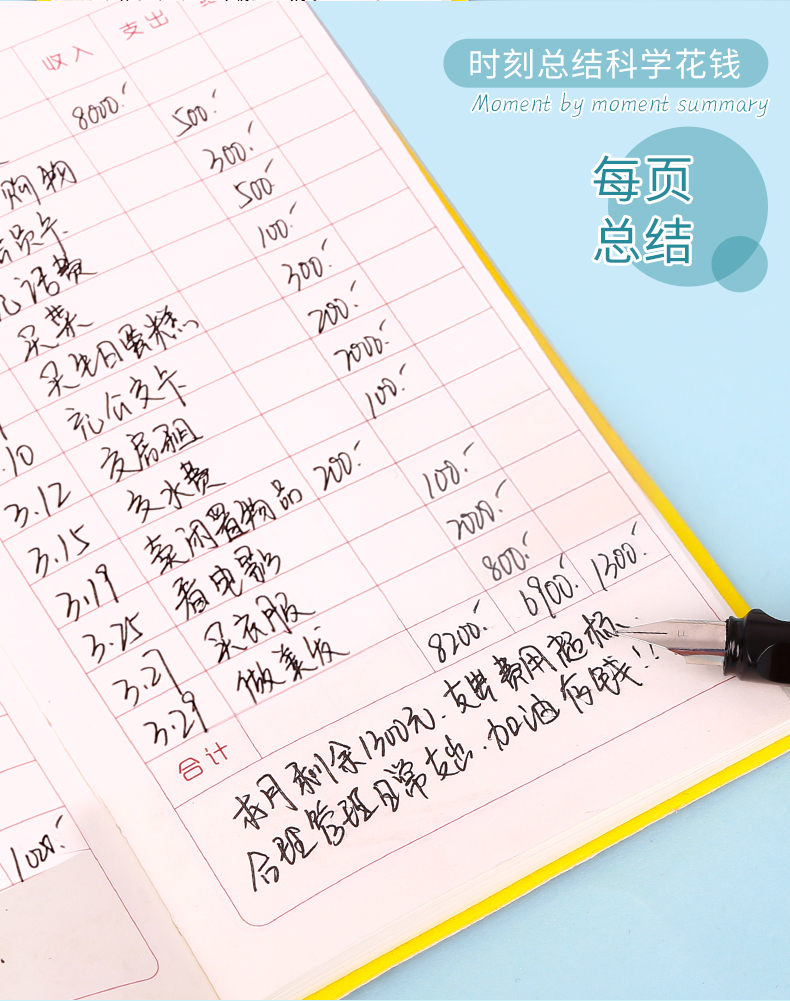 时刻总结科学花钱
Moment by moment summary
每页
总结
收入 支出
8000.-
500.-
购物 300.-
500.-
充话费 100.-
买菜 300.-
买生日蛋糕 200.-
.10 充公交卡 2000.-
3.12 交房租 100.-
3.15 交水费
3.19 卖闲置物品 200.-
3.25 看电影 100.-
3.27 买衣服 2000.-
3.29 做美发 800.-
合计 8200.- 6900.- 1300.-
本月剩余1300元.支出费用超标.
合理管理日常支出.加油存钱!!
1000.-